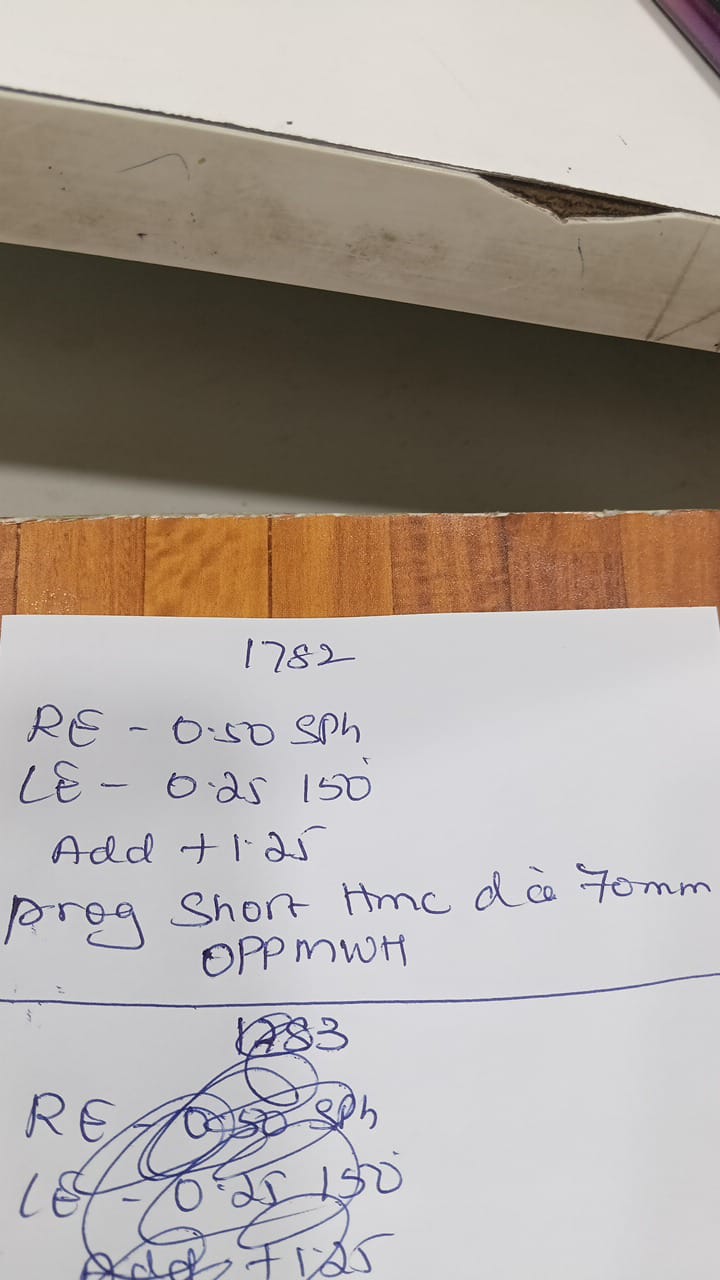 1782
RE - 0.50 Sph
LE - 0.25 150°
Add +1.25
prog Short Hmc dia 70mm
OPPMWH
1783
RE - 0.50 Sph
LE - 0.25 150°
Add +1.25